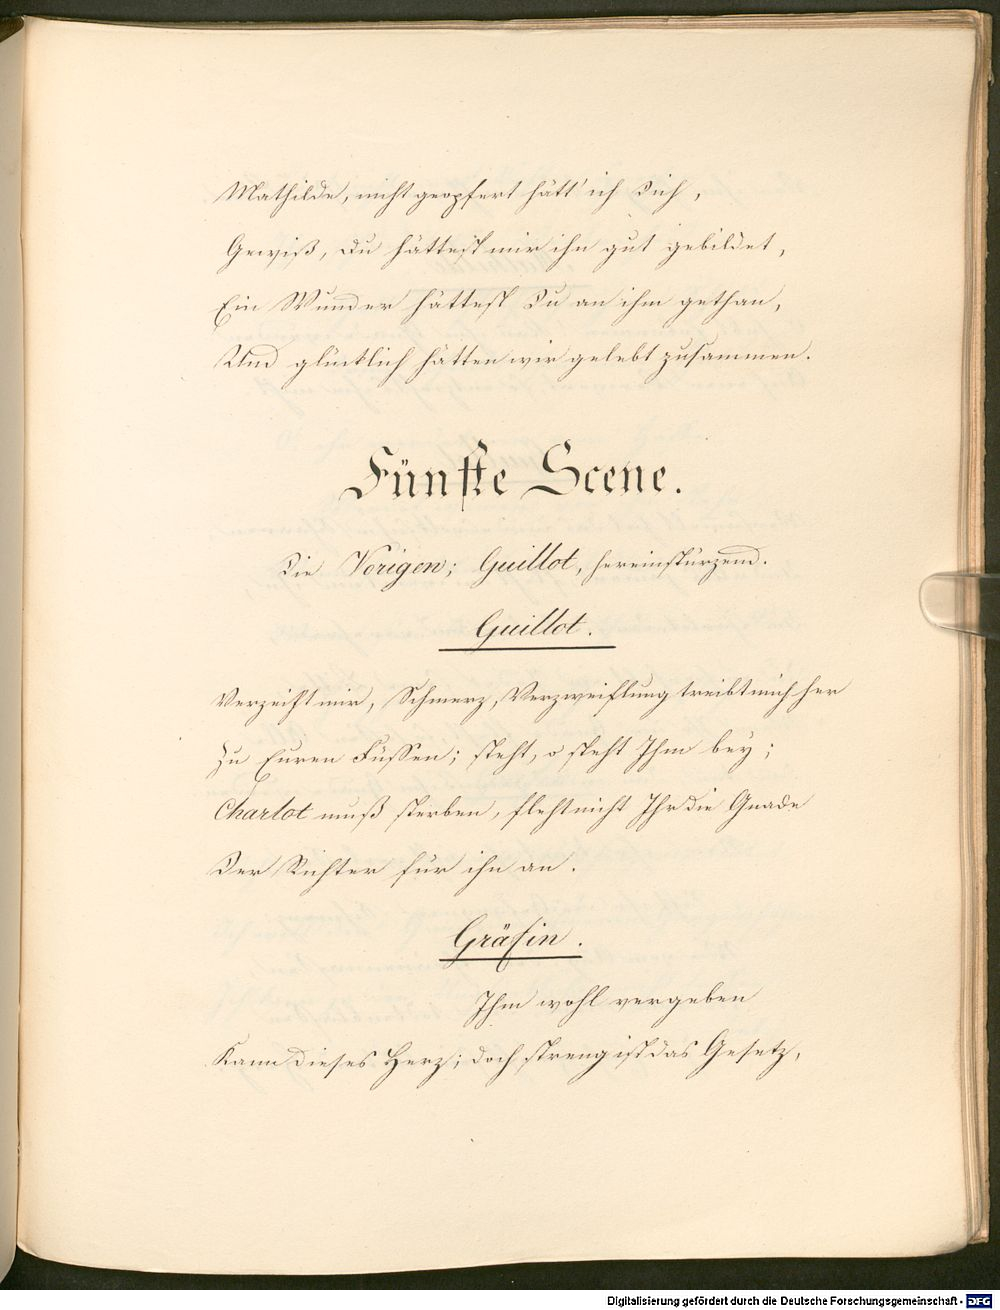 Mathilde, nicht geopfert hätt' ich Dich,
Gewiß, Du hättest mir ihn gut gebildet,
Ein Wunder hättest Du an ihm gethan,
Und glücklich hätten wir gelebt zusammen.
Fünfte Scene.
Die Vorigen; Guillot, hereinstürzend.
Guillot.
Verzeiht mir, Schmerz, Verzweiflung treibt mich her
Zu Euren Füssen; steht, o steht Ihm bey;
Charlot muß sterben, fleht nicht Ihr die Gnade
Der Richter für ihn an.
Gräfin.
Ihm wohl vergeben
Kann dieses Herz; doch streng ist das Gesetz,
Digitalisierung gefördert durch die Deutsche Forschungsgemeinschaft - DFG